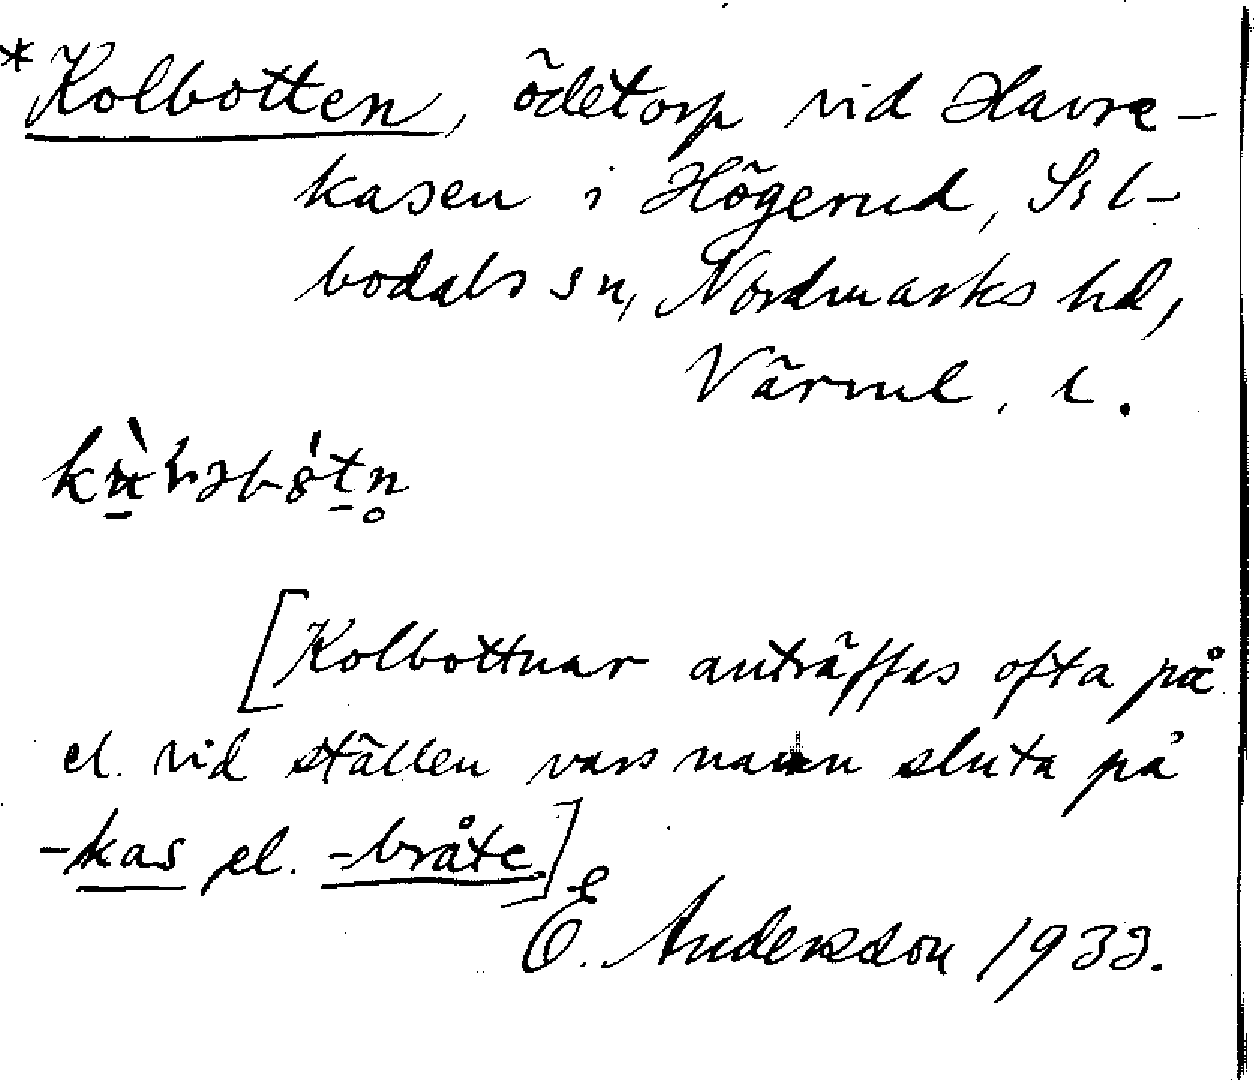 *Kolbotten, ödetorp vid Havre-
kasen i Högerud, Sil-
bodals sn, Nordmarks hd,
Värml. l.
[Kolbottnar anträffas ofta på
el. vid ställen vars namn sluta på
-kas el. -bråte]
E. Andersson 1933.